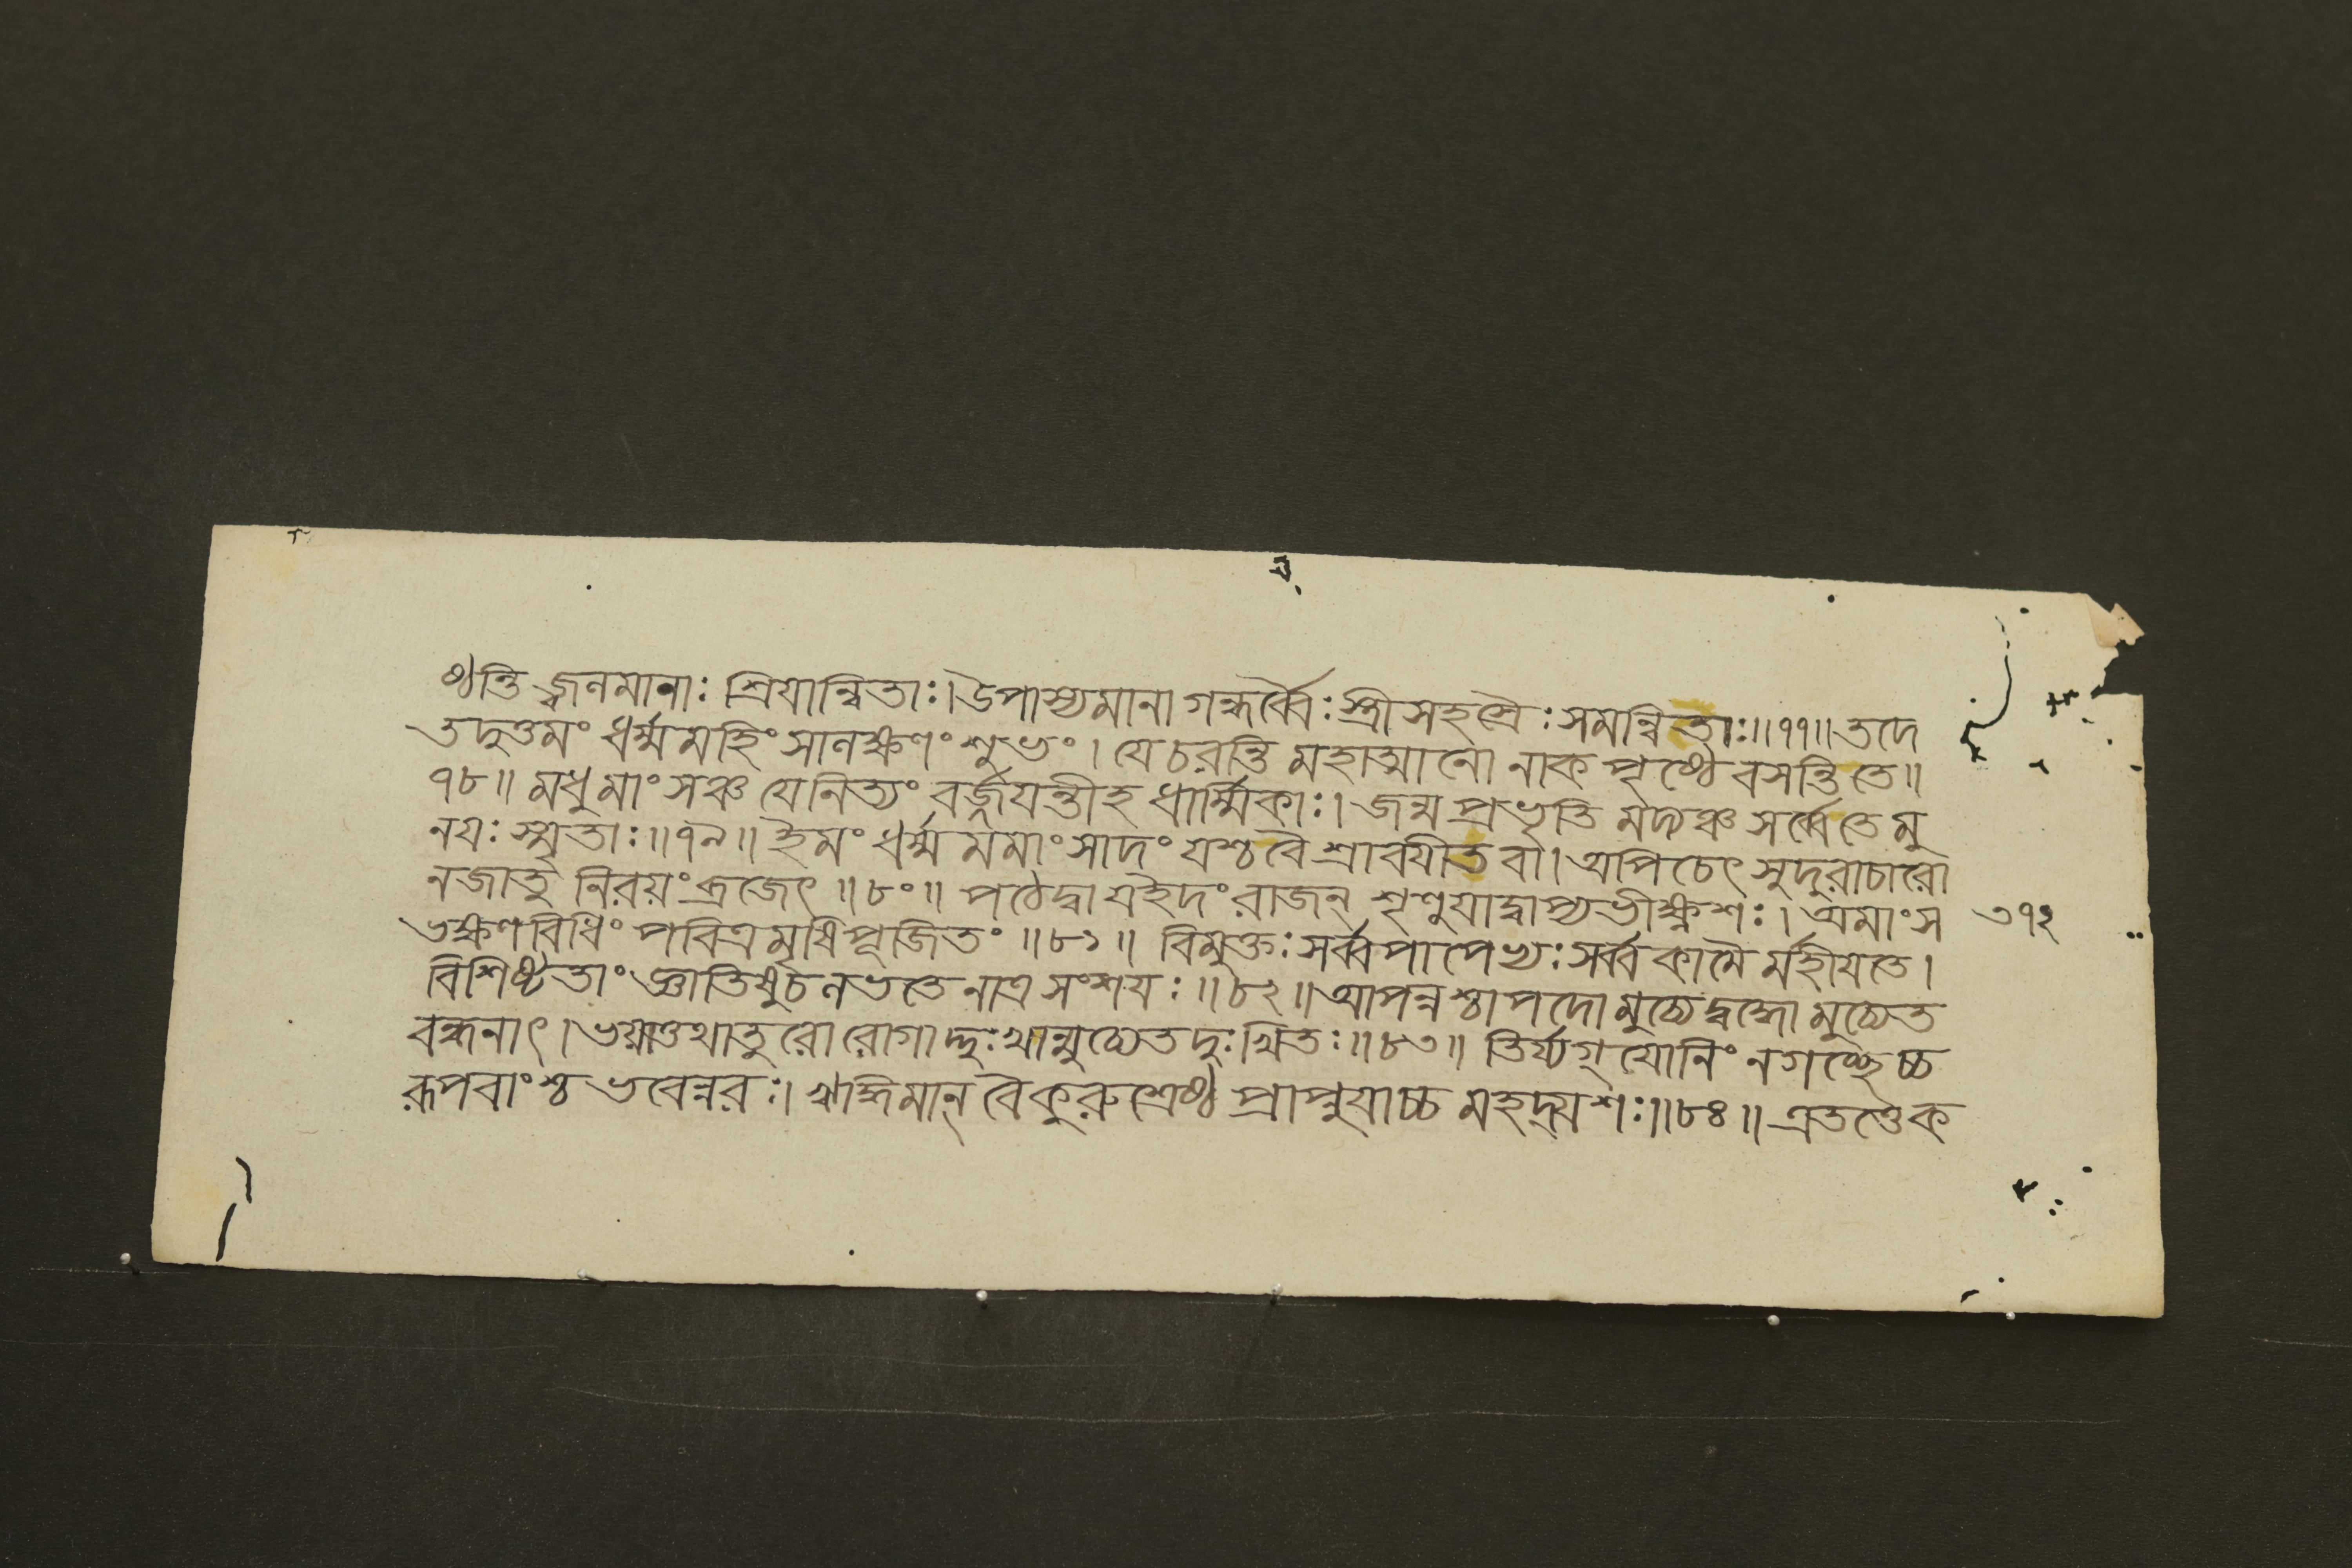 ষ্ঠন্তি জ্বলমানাঃ শ্রিয়ান্বিতাঃ। উপাস্যমানা গন্ধর্ব্বৈঃ স্ত্রীসহস্রৈঃ সমন্বিতাঃ॥৭৭॥ তদে
তদুত্তমং ধর্ম্মমহিংসালক্ষণং শুভং। যে চরন্তি মহাত্মানো নাকপৃষ্ঠে বসন্তি তে॥
৭৮॥ মধুমাংসঞ্চ যে নিত্যং বর্জ্জয়ন্তীহ ধার্ম্মিকাঃ। জন্মপ্রভৃতি মদ্যঞ্চ সর্ব্বে তে মু
নয়ঃ স্মৃতাঃ॥৭৯॥ ইমং ধর্ম্মমমাংসাদং যশ্চ বৈ শ্রাবয়ীত বা। অপি চেৎ সুদুরাচারো
ন জাতু নিরয়ং ব্রজেৎ॥৮০॥ পঠেদ্বা য ইদং রাজন্ শৃণুয়াদ্বাপ্যভীক্ষ্ণশঃ। অমাংস ৩৭২
ভক্ষণবিধিং পবিত্রমৃষিপূজিতং॥৮১॥ বিমুক্তঃ সর্ব্বপাপেভ্যঃ সর্ব্বকামৈর্মহীয়তে।
বিশিষ্টতাং জ্ঞাতিষু চ লভতে নাত্র সংশয়ঃ॥৮২॥ আপন্নশ্চাপদো মুচ্যেদ্বদ্ধো মুচ্যেত
বন্ধনাৎ। তথাতুরো রোগাদ্দুঃখান্মুচ্যেত দুঃখিতঃ॥৮৩॥ তির্য্যগ্যোনিং ন গচ্ছেচ্চ
রূপবাংশ্চ ভবেন্নরঃ। ঋদ্ধিমান্ বৈ কুরুশ্রেষ্ঠ প্রাপ্নুয়াচ্চ মহদ্যশঃ॥৮৪॥ এতত্তে ক